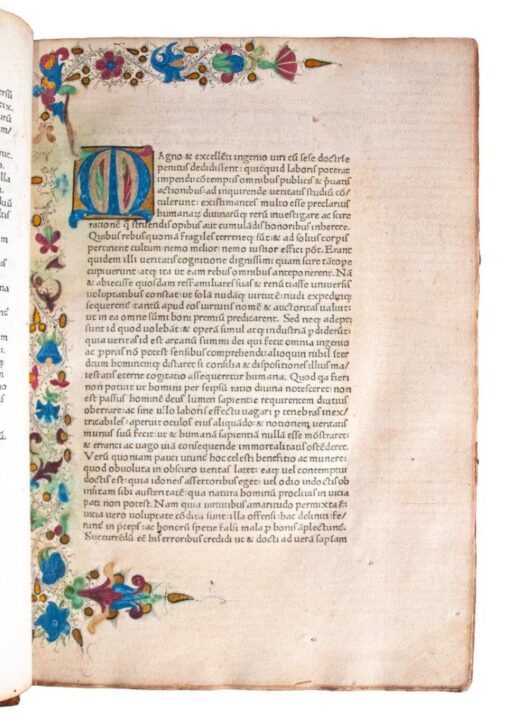 Magno & excellēti ingenio uiri cū sese doctrīe
penitus dedidissent: quicquid laboris poterat
impendi: cōtemptis omnibus publicis & p̄uatis
actionibus: ad inquirende ueritatis studiū cō/
tulerunt: existimantes multo esse preclarius
humanaꝝ diuinarūq̄ rerū inuestigare ac scire
rationē q̄ struendis opibus aut cumulādis honoribus inherere.
Quibus rebus quoniā fragiles terreneq̄ sūt: & ad solius corpis
pertinent cultum: nemo melior: nemo iustior effici pōt. Erant
quidem illi ueritatis cognitione dignissimi quam scire tātope
cupiuerunt: atq̄ ita ut eam rebus omnibus anteponerent. Nā
& abiecisse quosdam res familiares suas & renūtiasse uniuersis
uoluptatibus constat: ut solā nudāq̄ uirtutē: nudi expeditiq̄
sequerent̄: tantū apud eos uirtutis nomē & auctoritas ualuit:
ut in ea omne sūmi boni premiū predicarent. Sed neq̄ adepti
sunt id quod uolebāt: & operā simul atq̄ industriā p̄diderūt:
quia ueritas id est arcanū summi dei qui fecit omnia ingenio
ac p̄priis nō potest sensibus comprehendi: alioquin nihil iter
deum hominemq̄ distaret: si consilia & dispositiones illius ma/
iestatis eterne cogitatio assequeretur humana. Quod q̄a fieri
non potuit ut homini per seipsū ratio diuina notesceret: non
est passus hominē deus lumen sapientiē requirentem diutius
oberrare: ac sine ullo laboris effectu uagari p̄ tenebras inex/
tricabiles: aperuit oculos eius aliquādo: & notionem ueritatis
munus suū fecit: ut & humanā sapientiā nullā esse mōstraret:
& erranti ac uago uiā consequende immortalitatis ostēderet.
Verū quoniam pauci utunt̄ hoc celesti beneficio ac munere:
quod obuoluta in obscuro ueritas latet: eaq̄ uel contemptui
doctis est: quia idoneis assertoribus eget: uel odio indoctis ob
insitam sibi austeritatē: quā natura hominū procliuis in uitia
pati non potest. Nam quia uirtutibus amaritudo permixta ē:
uitia uero uoluptate cōdita sunt: illa offensi: hac deliniti: fe/
runt̄ in p̄ceps: ac bonorū specie falsi mala p̄ bonis āplectunt̄.
Succurrēdū eē his erroribus credidi: ut & docti ad uerā sapiam